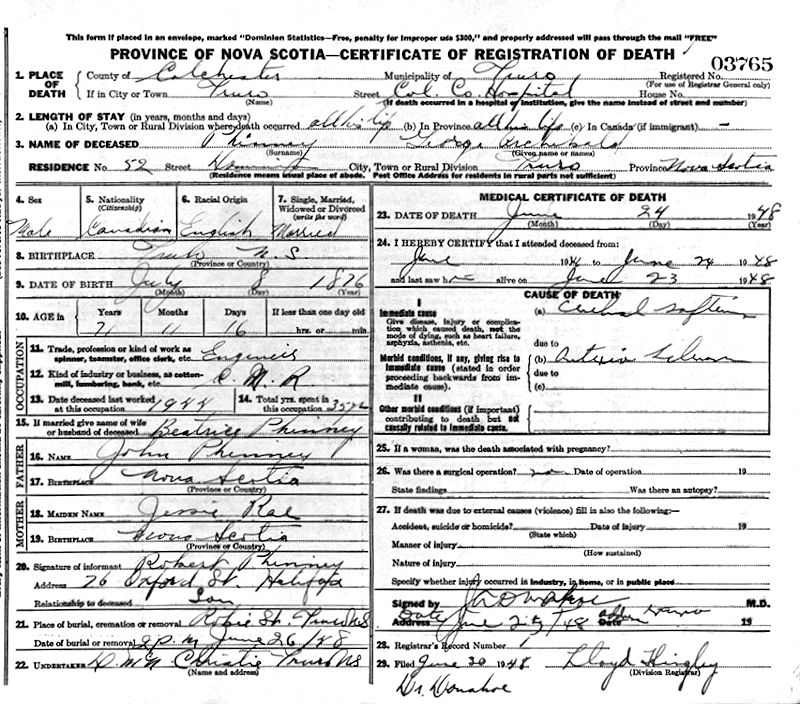 This form if placed in an envelope, marked "Dominion Statistics—Free, penalty for improper use $300," and properly addressed will pass through the mail "FREE"
PROVINCE OF NOVA SCOTIA—CERTIFICATE OF REGISTRATION OF DEATH
03765
1. PLACE OF DEATH County of Colchester Municipality of Truro Registered No.
(For use of Registrar General only)
If in City or Town Truro Street Col. Co. Hospital House No.
(Name) (If death occurred in a hospital or institution, give the name instead of street and number)
2. LENGTH OF STAY (in years, months and days)
(a) In City, Town or Rural Division where death occurred all his life (b) In Province all his life (c) In Canada (if immigrant) —
3. NAME OF DECEASED Phinney George Archibald
(Surname) (Given name or names)
RESIDENCE No. 52 Street City, Town or Rural Division Truro Province Nova Scotia
(Residence means usual place of abode. Post Office Address for residents in rural parts not sufficient)
4. Sex 5. Nationality (Citizenship) 6. Racial Origin 7. Single, Married, Widowed or Divorced (write the word)
Male Canadian English Married
8. BIRTHPLACE Truro N.S.
(Province or Country)
9. DATE OF BIRTH July 8 1876
(Month) (Day) (Year)
10. AGE in Years Months Days If less than one day old
71 11 16 hrs. or min.
OCCUPATION
11. Trade, profession or kind of work as spinner, teamster, office clerk, etc. Engineer
12. Kind of industry or business, as cotton-mill, lumbering, bank, etc. C.N.R.
13. Date deceased last worked at this occupation 1944 14. Total yrs. spent in this occupation 35 yrs
15. If married give name of wife or husband of deceased Beatrice Phinney
FATHER
16. NAME John Phinney
17. BIRTHPLACE Nova Scotia
(Province or Country)
MOTHER
18. MAIDEN NAME Jessie Rae
19. BIRTHPLACE Nova Scotia
(Province or Country)
20. Signature of informant Robert Phinney
Address 76 Oxford St. Halifax
Relationship to deceased Son
21. Place of burial, cremation or removal Robie St. Truro NS
Date of burial or removal 2 P.M. June 26/48
22. UNDERTAKER Christie Truro NS
(Name and address)
MEDICAL CERTIFICATE OF DEATH
23. DATE OF DEATH June 24 1948
(Month) (Day) (Year)
24. I HEREBY CERTIFY that I attended deceased from:
June 19 to June 24 1948
and last saw him alive on June 23 1948
CAUSE OF DEATH
I
Immediate cause (a) Cerebral softening
Give disease, injury or complication which caused death, not the mode of dying, such as heart failure, asphyxia, asthenia, etc.
due to
Morbid conditions, if any, giving rise to immediate cause (stated in order proceeding backwards from immediate cause). (b) Arterio
due to
(c)
II
Other morbid conditions (if important) contributing to death but not causally related to immediate cause.
25. If a woman, was the death associated with pregnancy?
26. Was there a surgical operation? no Date of operation 19
State findings Was there an autopsy?
27. If death was due to external causes (violence) fill in also the following:—
Accident, suicide or homicide? Date of injury 19
(State which)
Manner of injury
(How sustained)
Nature of injury
Specify whether injury occurred in industry, in home, or in public place
Signed by M.D.
Date
Address June 25/48 Date 19
28. Registrar's Record Number
29. Filed June 30 1948 Lloyd Hingley
(Division Registrar)
Dr. Donahoe